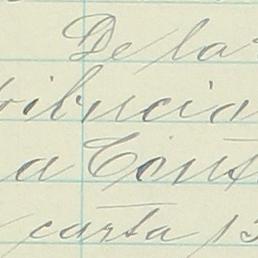 De la
ribucia
a Cont
carta 13